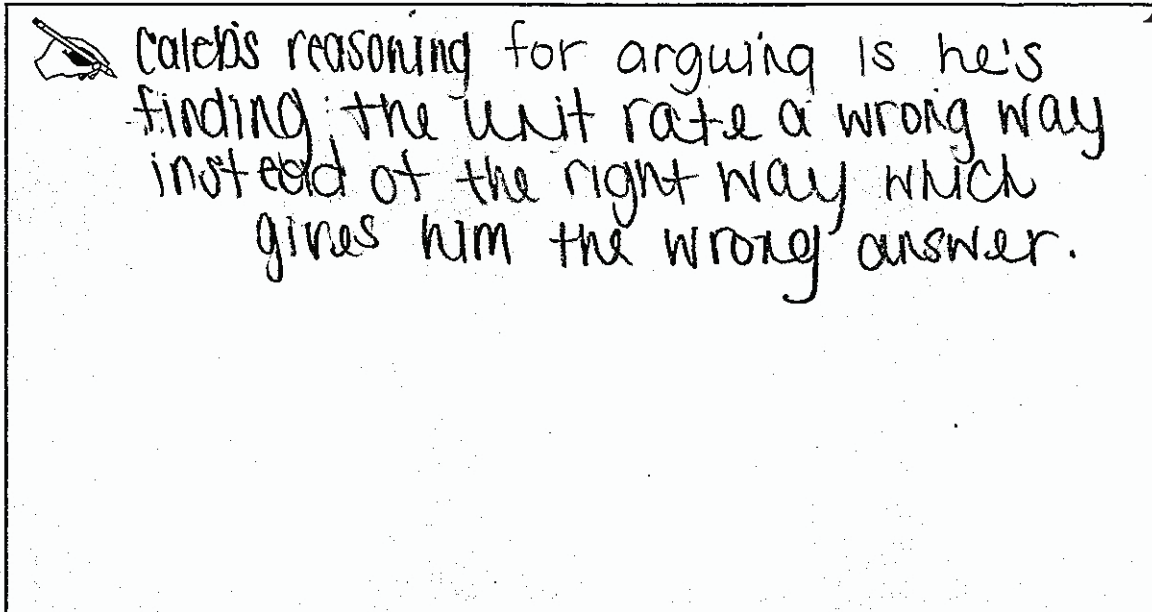 Caleb's reasoning for arguing is he's
finding the unit rate a wrong way
instead of the right way which
gives him the wrong answer.